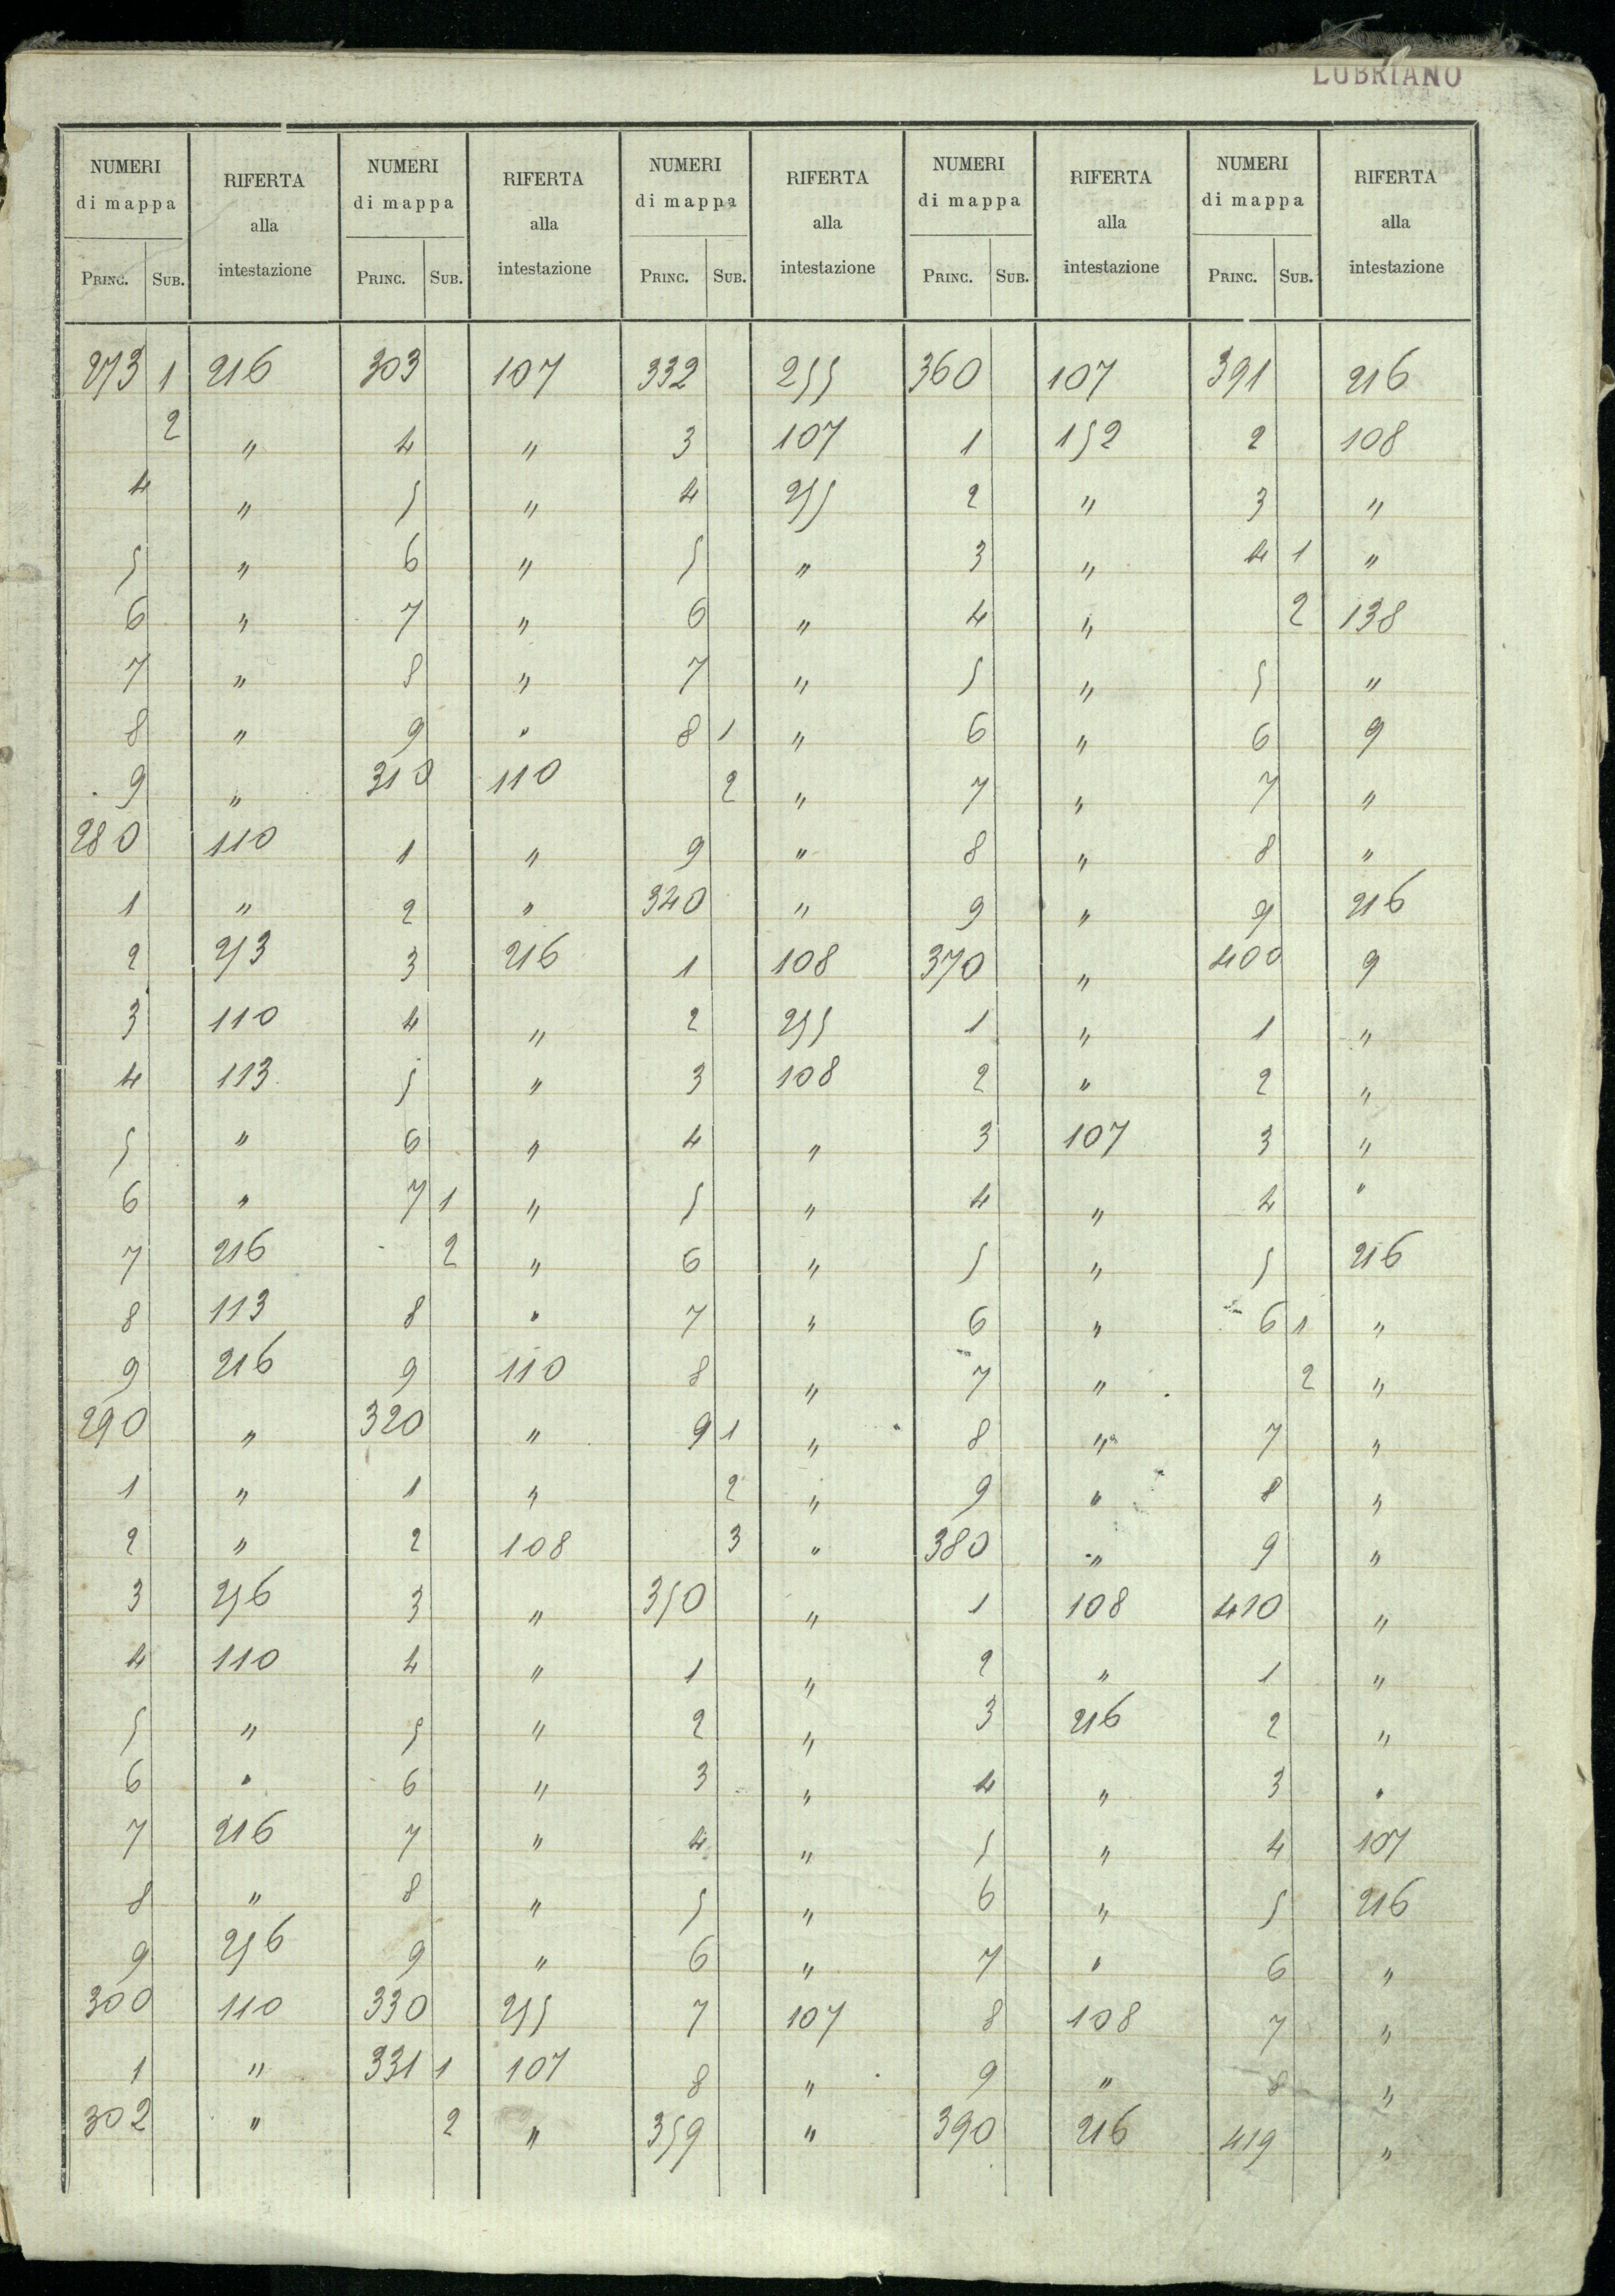 LUBRIANO
NUMERI RIFERTA NUMERI RIFERTA NUMERI RIFERTA NUMERI RIFERTA NUMERI RIFERTA
di mappa alla di mappa alla di mappa alla di mappa alla di mappa alla
PRINC. SUB. intestazione PRINC. SUB. intestazione PRINC. SUB. intestazione PRINC. SUB. intestazione PRINC. SUB. intestazione
273 1 216 303 107 332 255 360 107 391 216
2 " 4 " 3 107 1 152 2 108
4 " 5 " 4 255 2 " 3 "
5 " 6 " 5 " 3 " 4 1 "
6 " 7 " 6 " 4 " 2 138
7 " 8 " 7 " 5 " 5 "
8 " 9 " 8 1 " 6 " 6 9
9 " 310 110 2 " 7 " 7 "
280 110 1 " 9 " 8 " 8 "
1 " 2 " 340 " 9 " 9 216
2 253 3 216 1 108 370 " 400 9
3 110 4 " 2 255 1 " 1 "
4 113 5 " 3 108 2 " 2 "
5 " 6 " 4 " 3 107 3 "
6 " 7 1 " 5 " 4 " 4 "
7 216 2 " 6 " 5 " 5 216
8 113 8 " 7 " 6 " 6 1 "
9 216 9 110 8 " 7 " 2 "
290 " 320 " 9 1 " 8 " 7 "
1 " 1 " 2 " 9 " 8 "
2 " 2 108 3 " 380 " 9 "
3 256 3 " 350 " 1 108 410 "
4 110 4 " 1 " 2 " 1 "
5 " 5 " 2 " 3 216 2 "
6 " 6 " 3 " 4 " 3 "
7 216 7 " 4 " 5 " 4 107
8 " 8 " 5 " 6 " 5 216
9 256 9 " 6 " 7 " 6 "
300 110 330 255 7 107 8 108 7 "
1 " 331 1 107 8 " 9 " 8 "
302 " 2 " 359 " 390 216 419 "